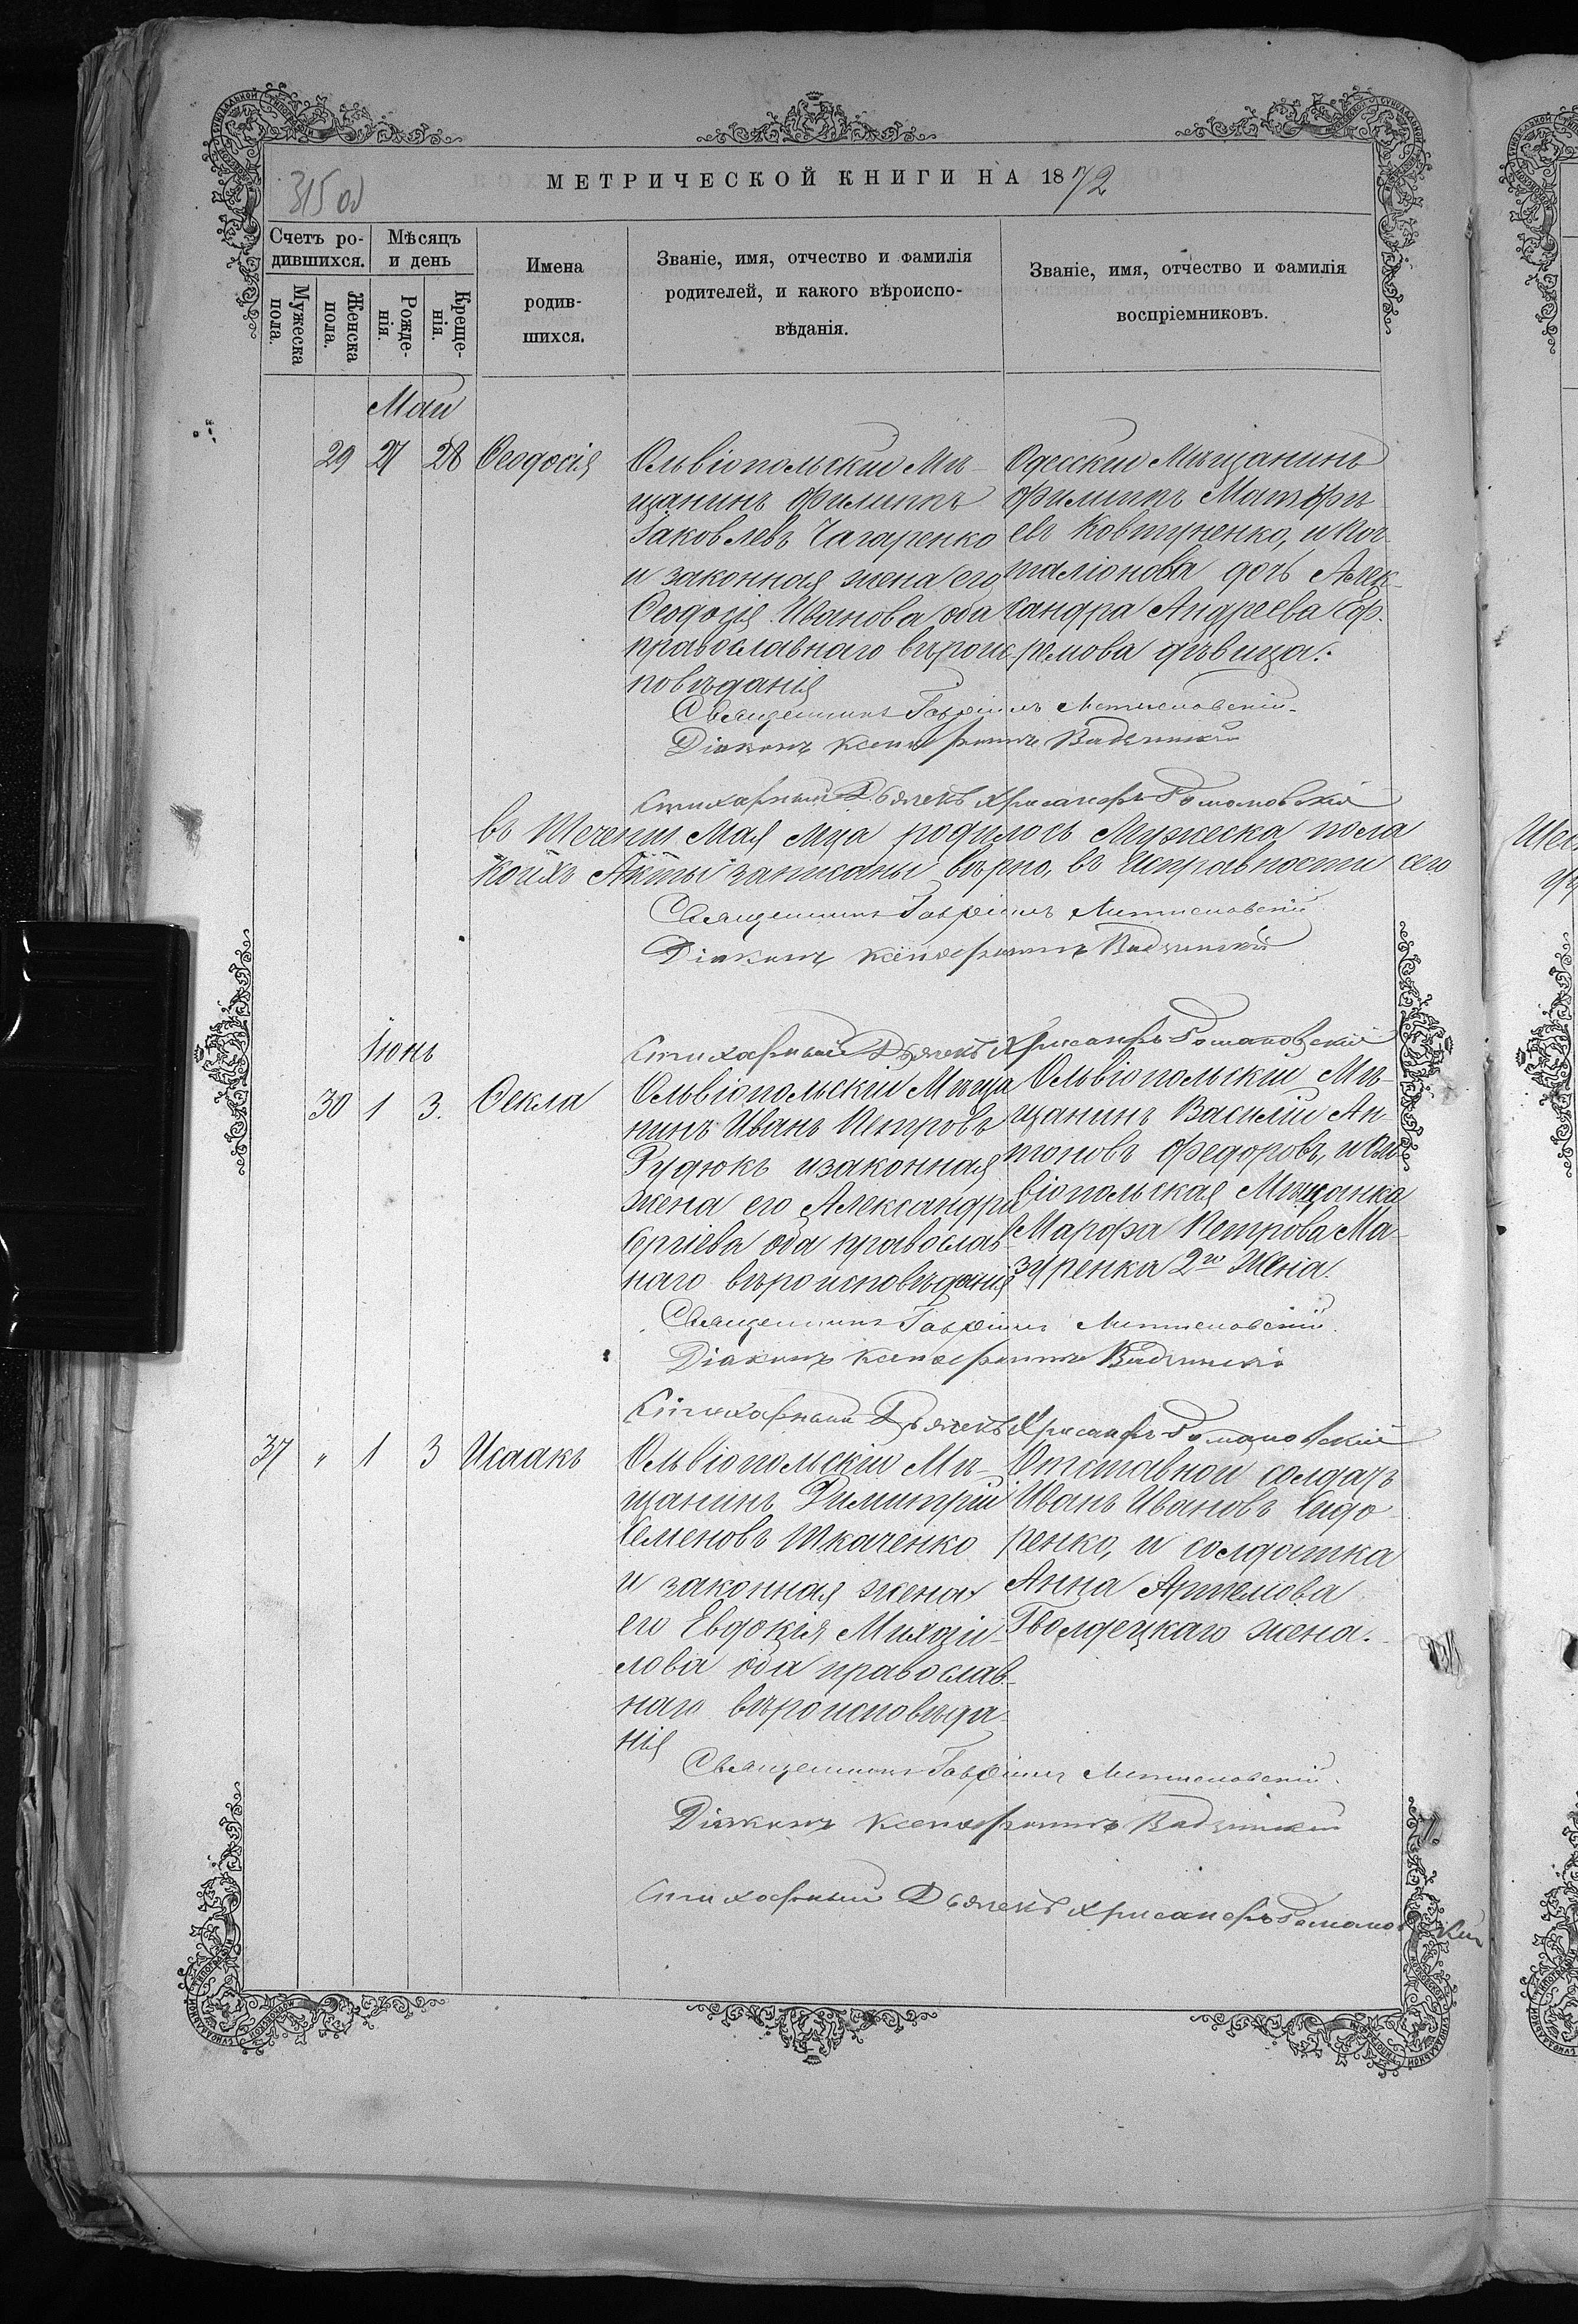 315 об
МЕТРИЧЕСКОЙ КНИГИ НА 1872
Счетъ ро-
дившихся.
Мѣсяцъ
и день
Мужеска
пола.
Женска
пола.
Рожде-
нія.
Креще-
нія.
Имена
родив-
шихся.
Званіе, имя, отчество и фамилія
родителей, и какого вѣроиспо-
вѣданія.
Званіе, имя, отчество и фамилія
воспріемниковъ.
Маи
29 27 28 Ѳеодосія
Ольвіопольскии Мѣ-
щанинъ Филиппъ
Іаковлевъ Чагаренко
и законная жена его
Ѳеодосія Иванова оба
православнаго вѣроис-
повѣданія
Одесскии Мѣщанинъ
Филиппъ Матфѣ-
евъ Ковтуненко, и Поч-
таліонова дочь Алек-
сандра Андреева Еф-
ремова дѣвица.
Священникъ Гавріилъ
Діаконъ Ксенофонтъ
Стихарный Дьячекъ Хрисанфъ Романовскій
въ Теченіи Мая Мца родилось Мужеска пола
Коихъ Акты записаны вѣрно, въ Исправности сего
Священникъ Гавріилъ
Діаконъ Ксенофонтъ
Стихарный Дьячекъ Хрисанфъ Романовскій
Іюнь
30 1 3. Ѳекла
Ольвіопольскіи Мѣща
нинъ Иванъ Петровъ
Рудюкъ изаконная
жена его Александра
Сергіева оба православ-
наго вѣроисповѣданія
Ольвіопольскіи Мѣ-
щанинъ Василіи Ан
тоновъ Федоровъ, и Оль
віопольская Мѣщанка
Марфа Петрова Ма-
зуренка 2го Жена.
Священникъ Гавріилъ
Діаконъ Ксенофонтъ
Стихарный Дьячекъ Хрисанфъ Романовскій
37 " 1 3 Исаакъ
Ольвіопольскіи Мѣ-
щанинъ Димитріи
Семеновъ Ткаченко
и законная жена
его Евдокія Михаи-
лова оба православ-
наго вѣроисповѣда-
нія
Отставнои солдатъ
Иванъ Ивановъ Сидо
ренко, и солдатка
Анна Артемова
Гволдецкаго жена.
Священникъ Гавріилъ
Діаконъ Ксенофонтъ
Стихарный Дьячекъ Хрисанфъ Романовскій